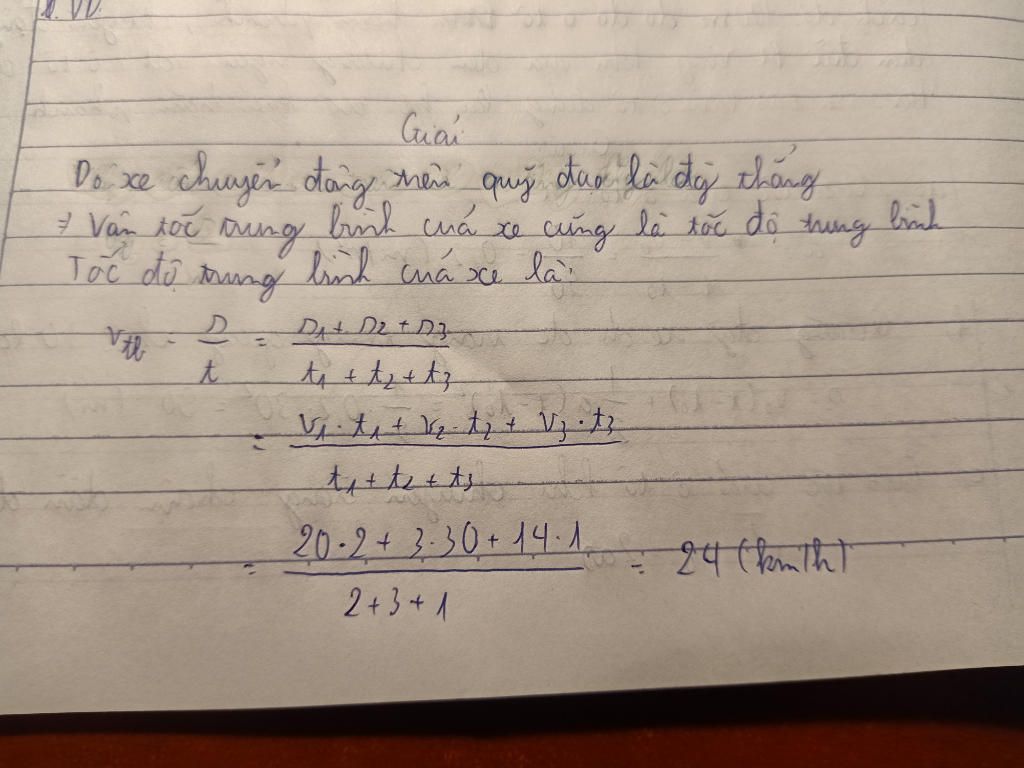 Giải
Do xe chuyển động trên quỹ đạo là đg thẳng
=> Vận tốc trung bình của xe cũng là tốc độ trung bình
Tốc độ trung bình của xe là:
v_tb = s/t = (s1 + s2 + s3)/(t1 + t2 + t3)
= (v1 · t1 + v2 · t2 + v3 · t3)/(t1 + t2 + t3)
= (20 · 2 + 3 · 30 + 14 · 1)/(2 + 3 + 1) = 24 (km/h)